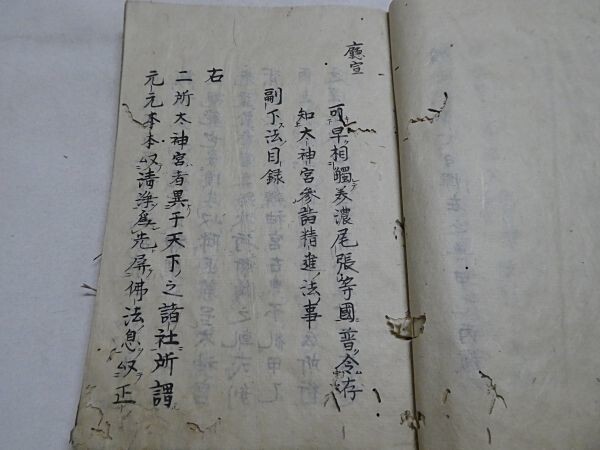 廳宣
可早相觸美濃尾張等國普令存
知太神宮參詣精進法事
副下法目録
右
二所太神宮者異于天下之諸社所謂
元元本本以清浄為先屏佛法息以正